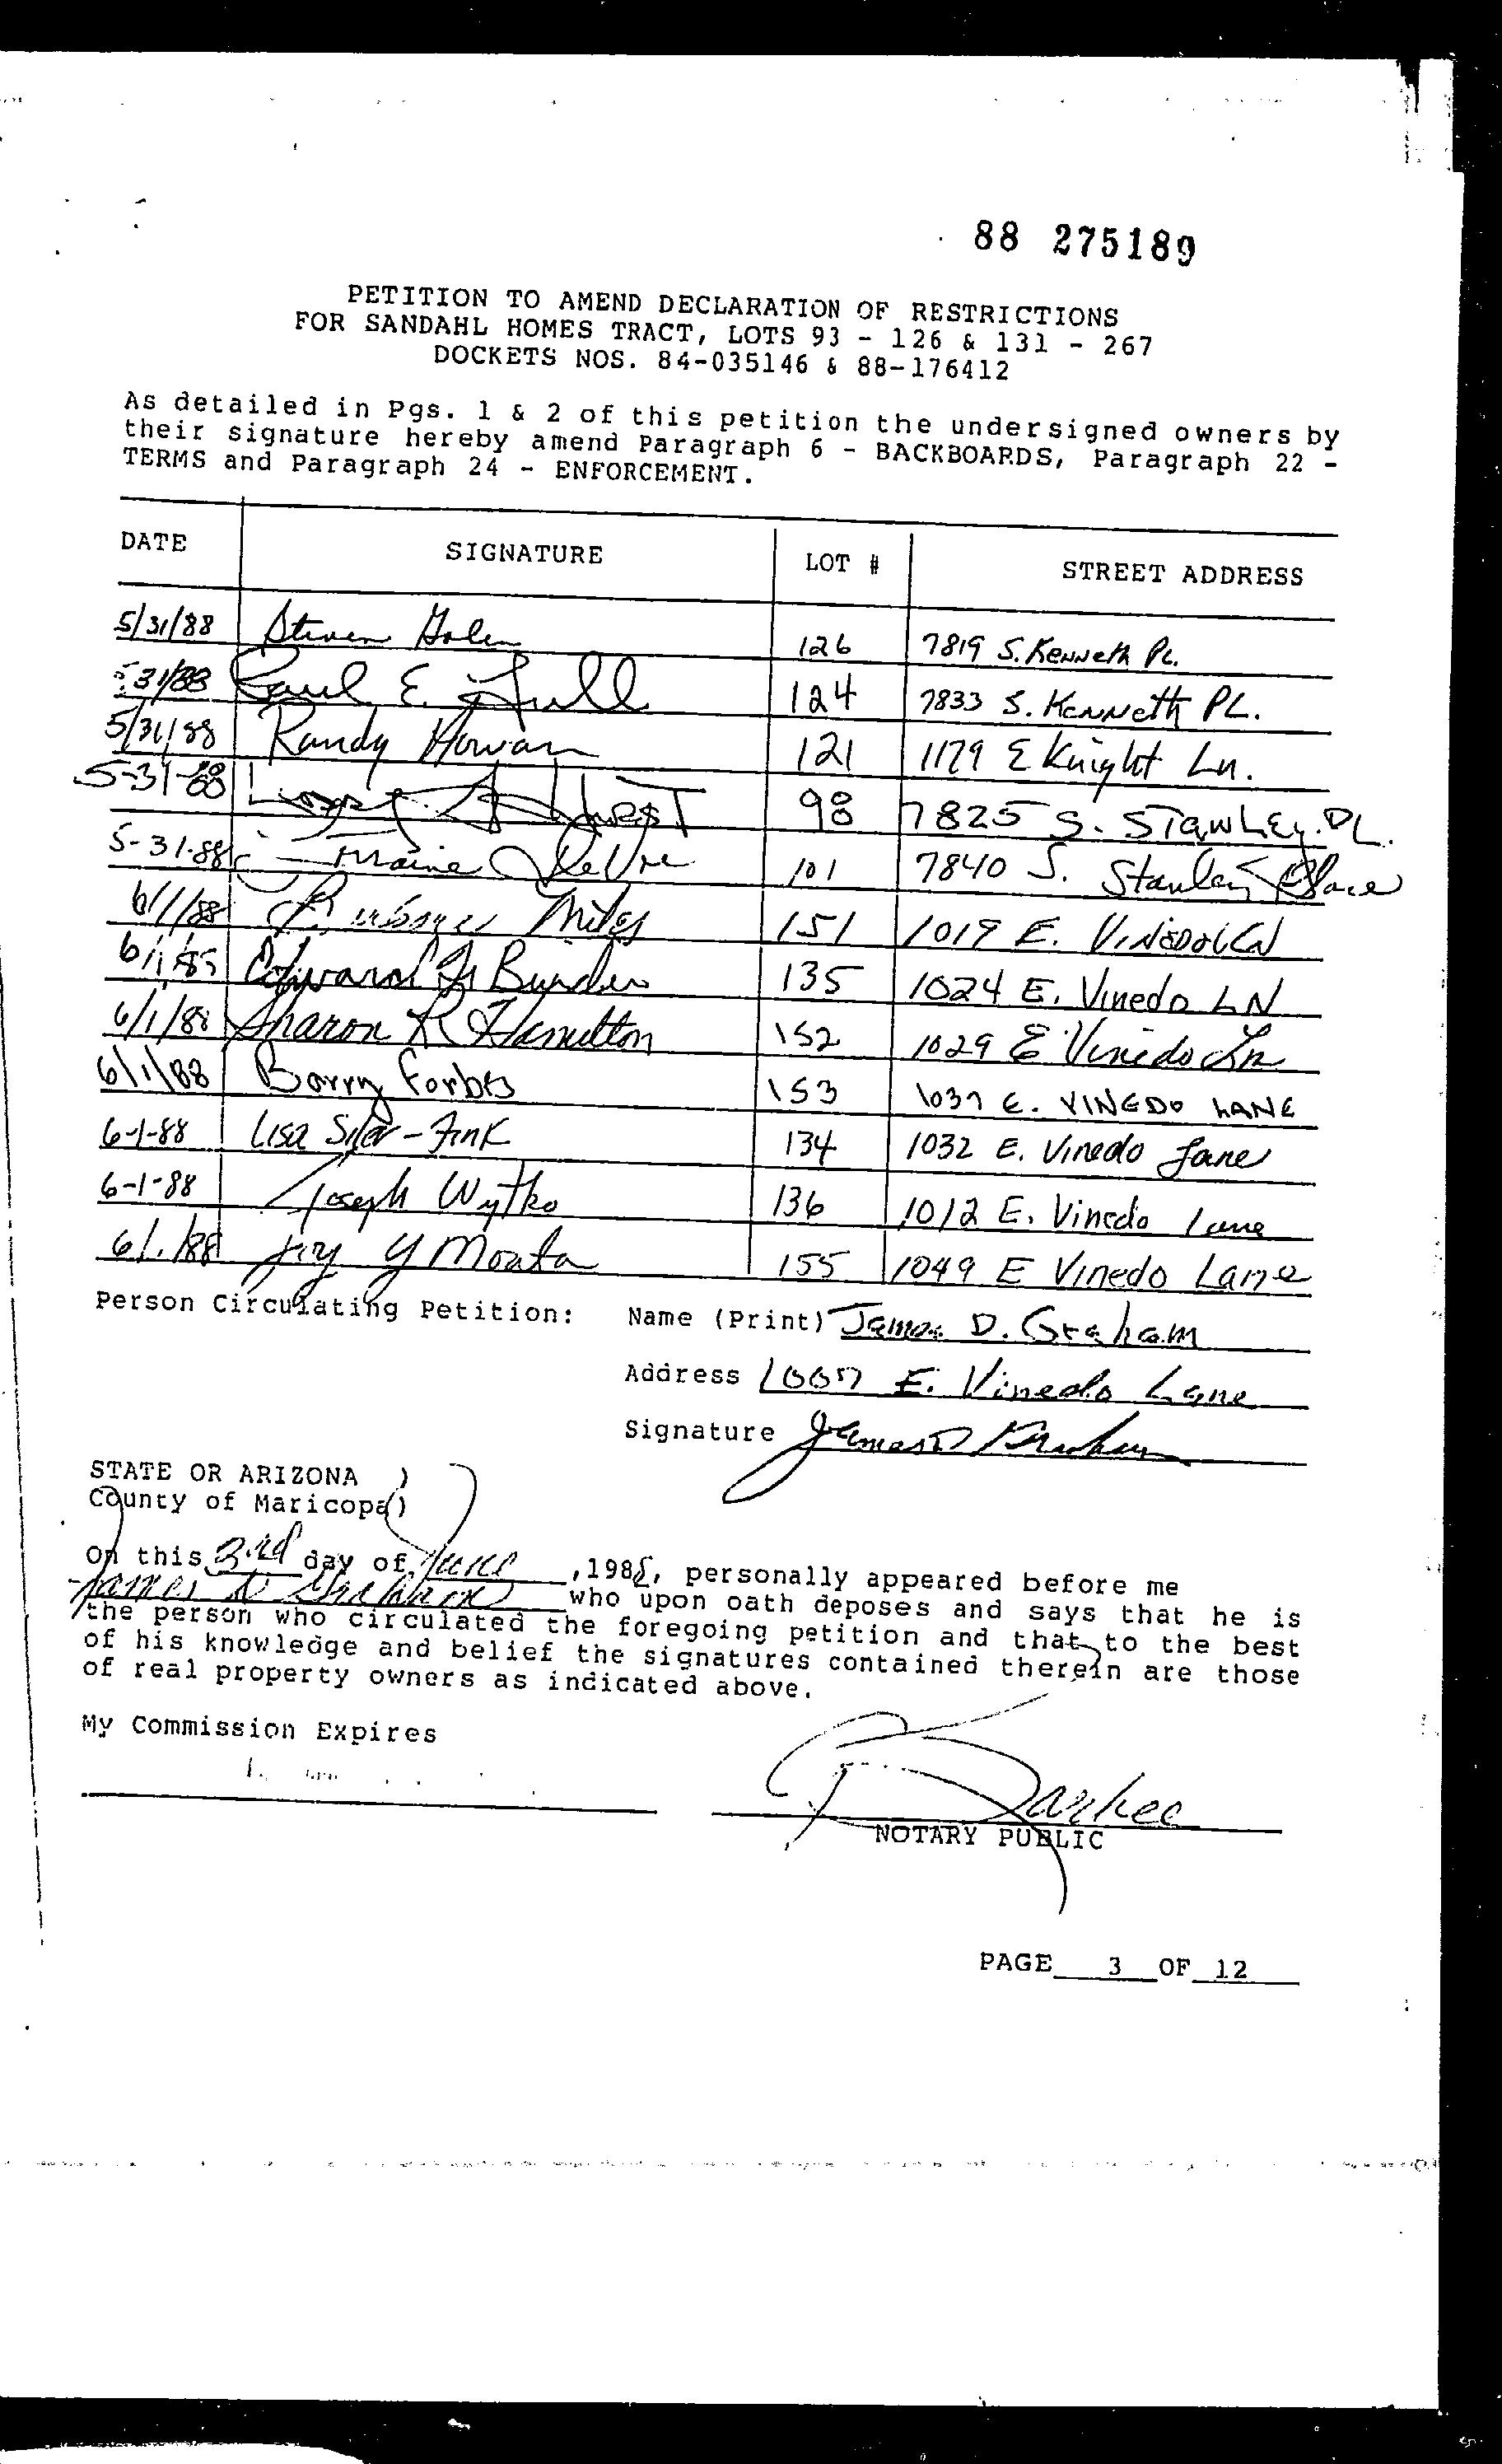 88 275189
PETITION TO AMEND DECLARATION OF RESTRICTIONS
FOR SANDAHL HOMES TRACT, LOTS 93 - 126 & 131 - 267
DOCKETS NOS. 84-035146 & 88-176412
As detailed in Pgs. 1 & 2 of this petition the undersigned owners by
their signature hereby amend Paragraph 6 - BACKBOARDS, Paragraph 22 -
TERMS and Paragraph 24 - ENFORCEMENT.
DATE SIGNATURE LOT # STREET ADDRESS
5/31/88 Steven 126 7819 S. Kenneth PL.
5/31/88 Paul E. 124 7833 S. Kenneth PL.
5/31/88 Randy 121 1179 E Knight Ln.
5-31-88 98 7825 S. STanLEy. PL.
5-31-88 101 7840 S. Stanley Place
6/1/88 Miles 151 1019 E.
6/1/88 Edward 135 1024 E. Vinedo LN
6/1/88 Sharon R Hamilton 152 1029 E Vinedo Ln
6/1/88 Barry Forbes 153 1037 E. VINEDO LANE
6-1-88 Lisa Siler-Fink 134 1032 E. Vinedo Lane
6-1-88 Joseph Wytko 136 1012 E. Vinedo Lane
6/1/88 155 1049 E Vinedo Lane
Person Circulating Petition: Name (Print) James D. Graham
Address 1007 E. Vinedo Lane
Signature James D Graham
STATE OR ARIZONA )
County of Maricopa)
On this 3rd day of June ,1988, personally appeared before me
James D Graham who upon oath deposes and says that he is
the person who circulated the foregoing petition and that to the best
of his knowledge and belief the signatures contained therein are those
of real property owners as indicated above.
My Commission Expires
NOTARY PUBLIC
PAGE 3 OF 12